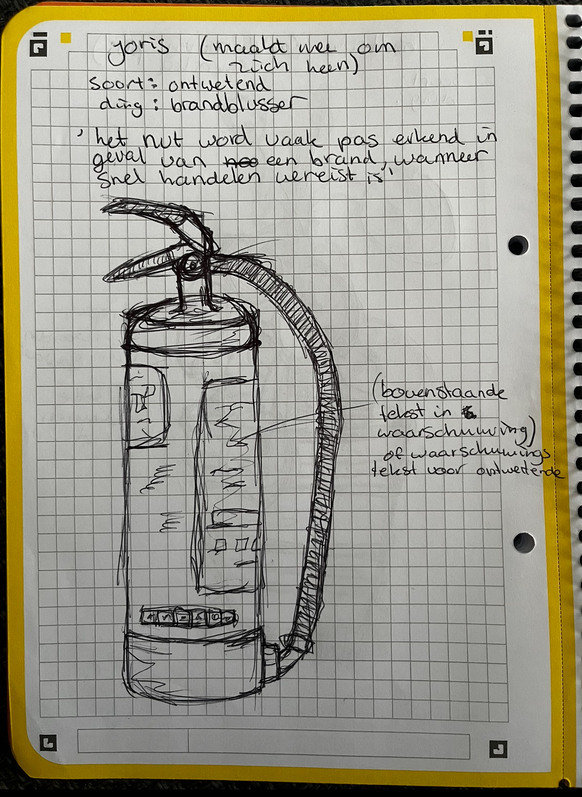 joris (maakt mee om
zich heen)
soort: ontwetend
ding: brandblusser
'het nut word vaak pas erkend in
geval van een brand, wanneer
snel handelen vereist is'
(bovenstaande
tekst in
waarschuwing)
of waarschuwings
tekst voor ontwetende